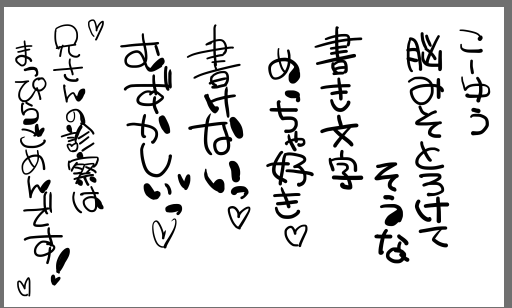 こーゆう
脳みそとろけて
そうな
書き文字
めっちゃ好き♡
書けないっ♡
むずかしいっ♡
兄さんの診察は
まっぴらごめんです!♡